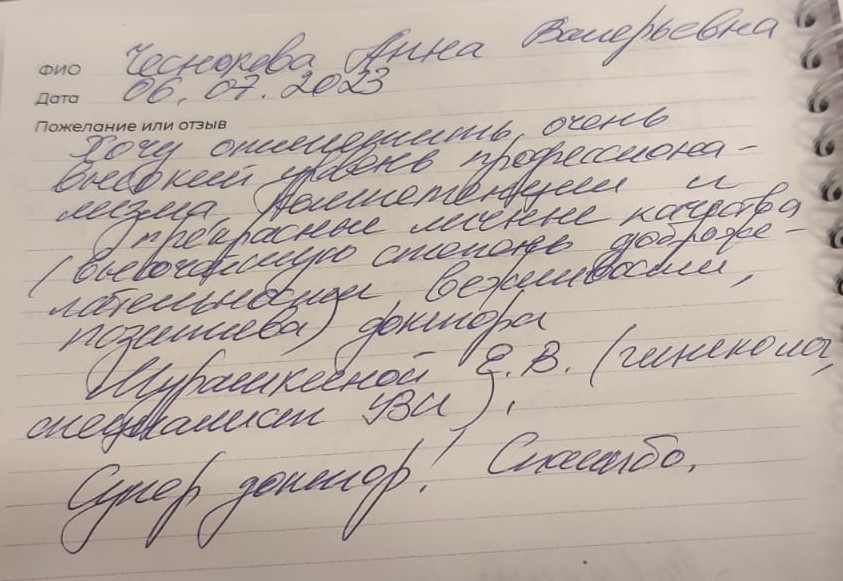 ФИО Чеснокова Анна Валерьевна
Дата 06.07.2023
Пожелание или отзыв
Хочу отметить очень
высокий уровень профессиона-
лизма компетенции и
прекрасные личные качества
(высочайшую степень доброже-
лательности вежливости,
позитива) доктора
Мурашкиной Е.В. (гинеколог,
специалист УЗИ).
Супер доктор! Спасибо.